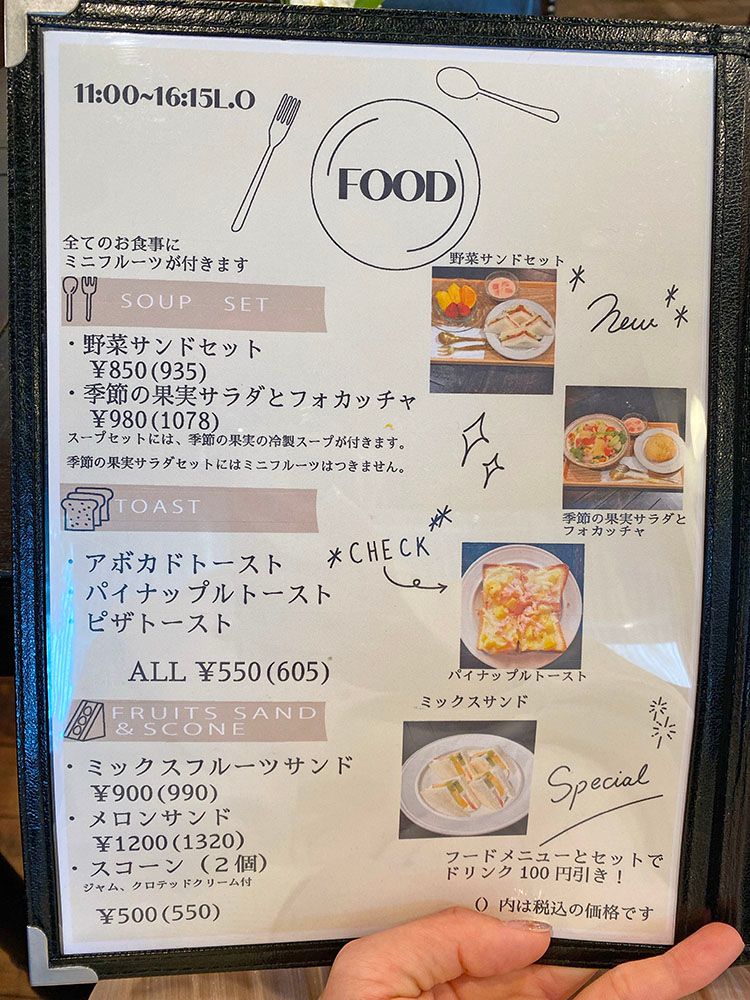 11:00~16:15L.O
FOOD
全てのお食事に
ミニフルーツが付きます
SOUP SET
・野菜サンドセット
¥850(935)
・季節の果実サラダとフォカッチャ
¥980(1078)
スープセットには、季節の果実の冷製スープが付きます。
季節の果実サラダセットにはミニフルーツはつきません。
野菜サンドセット
New
季節の果実サラダと
フォカッチャ
TOAST
・アボカドトースト
・パイナップルトースト
・ピザトースト
ALL ¥550(605)
*CHECK
パイナップルトースト
FRUITS SAND
& SCONE
・ミックスフルーツサンド
¥900(990)
・メロンサンド
¥1200(1320)
・スコーン（２個）
ジャム、クロテッドクリーム付
¥500(550)
ミックスサンド
Special
フードメニューとセットで
ドリンク100円引き！
() 内は税込の価格です